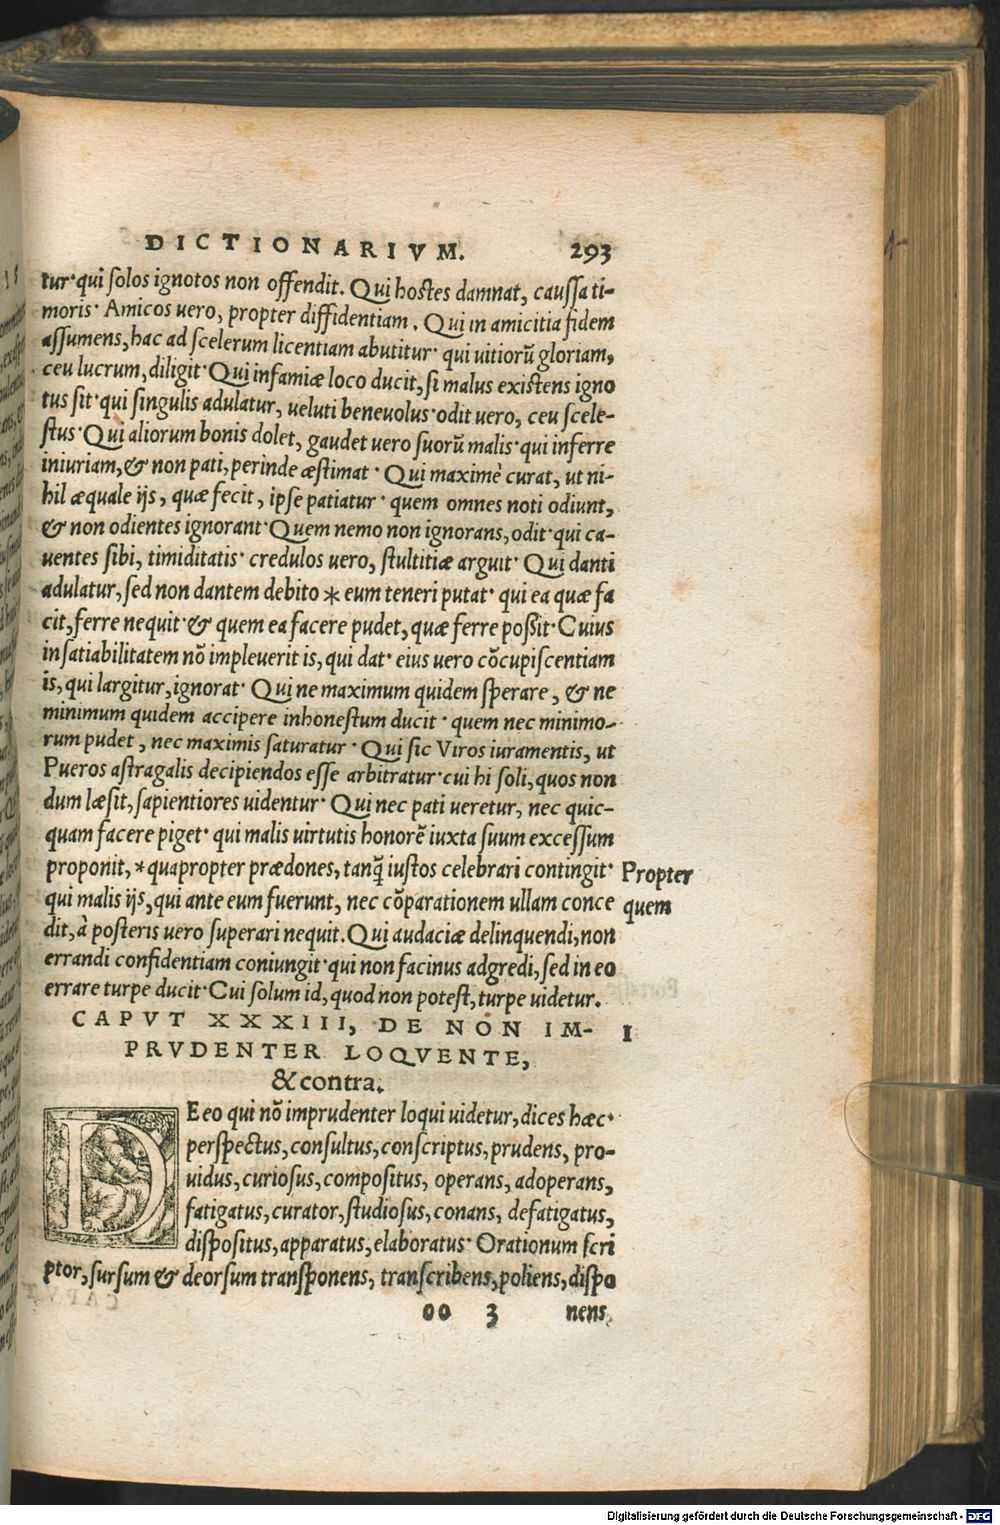 DICTIONARIVM. 293
tur· qui solos ignotos non offendit. Qui hostes damnat, caussa ti-
moris· Amicos uero, propter diffidentiam. Qui in amicitia fidem
assumens, hac ad scelerum licentiam abutitur· qui uitiorũ gloriam,
ceu lucrum, diligit· Qui infamiæ loco ducit, si malus existens igno
tus sit· qui singulis adulatur, ueluti beneuolus· odit uero, ceu scele-
stus· Qui aliorum bonis dolet, gaudet uero suorũ malis· qui inferre
iniuriam, & non pati, perinde æstimat· Qui maximè curat, ut ni-
hil æquale ijs, quæ fecit, ipse patiatur· quem omnes noti odiunt,
& non odientes ignorant· Quem nemo non ignorans, odit· qui ca-
uentes sibi, timiditatis· credulos uero, stultitiæ arguit· Qui danti
adulatur, sed non dantem debito * eum teneri putat· qui ea quæ fa
cit, ferre nequit· & quem ea facere pudet, quæ ferre possit· Cuius
insatiabilitatem nõ impleuerit is, qui dat· eius uero cõcupiscentiam
is, qui largitur, ignorat· Qui ne maximum quidem sperare, & ne
minimum quidem accipere inhonestum ducit· quem nec minimo-
rum pudet, nec maximis saturatur· Qui sic Viros iuramentis, ut
Pueros astragalis decipiendos esse arbitratur· cui hi soli, quos non
dum læsit, sapientiores uidentur· Qui nec pati ueretur, nec quic-
quam facere piget· qui malis uirtutis honorẽ iuxta suum excessum
proponit, * quapropter prædones, tanq̃ iustos celebrari contingit· Propter
qui malis ijs, qui ante eum fuerunt, nec cõparationem ullam conce quem
dit, à posteris uero superari nequit. Qui audaciæ delinquendi, non
errandi confidentiam coniungit· qui non facinus adgredi, sed in eo
errare turpe ducit· Cui solum id, quod non potest, turpe uidetur.
CAPVT XXXIII, DE NON IM- I
PRVDENTER LOQVENTE,
& contra.
DE eo qui nõ imprudenter loqui uidetur, dices hæc·
perspectus, consultus, conscriptus, prudens, pro-
uidus, curiosus, compositus, operans, adoperans,
fatigatus, curator, studiosus, conans, defatigatus,
dispositus, apparatus, elaboratus· Orationum scri
ptor, sursum & deorsum transponens, transcribens, poliens, dispo
oo 3 nens,
Digitalisierung gefördert durch die Deutsche Forschungsgemeinschaft - DFG